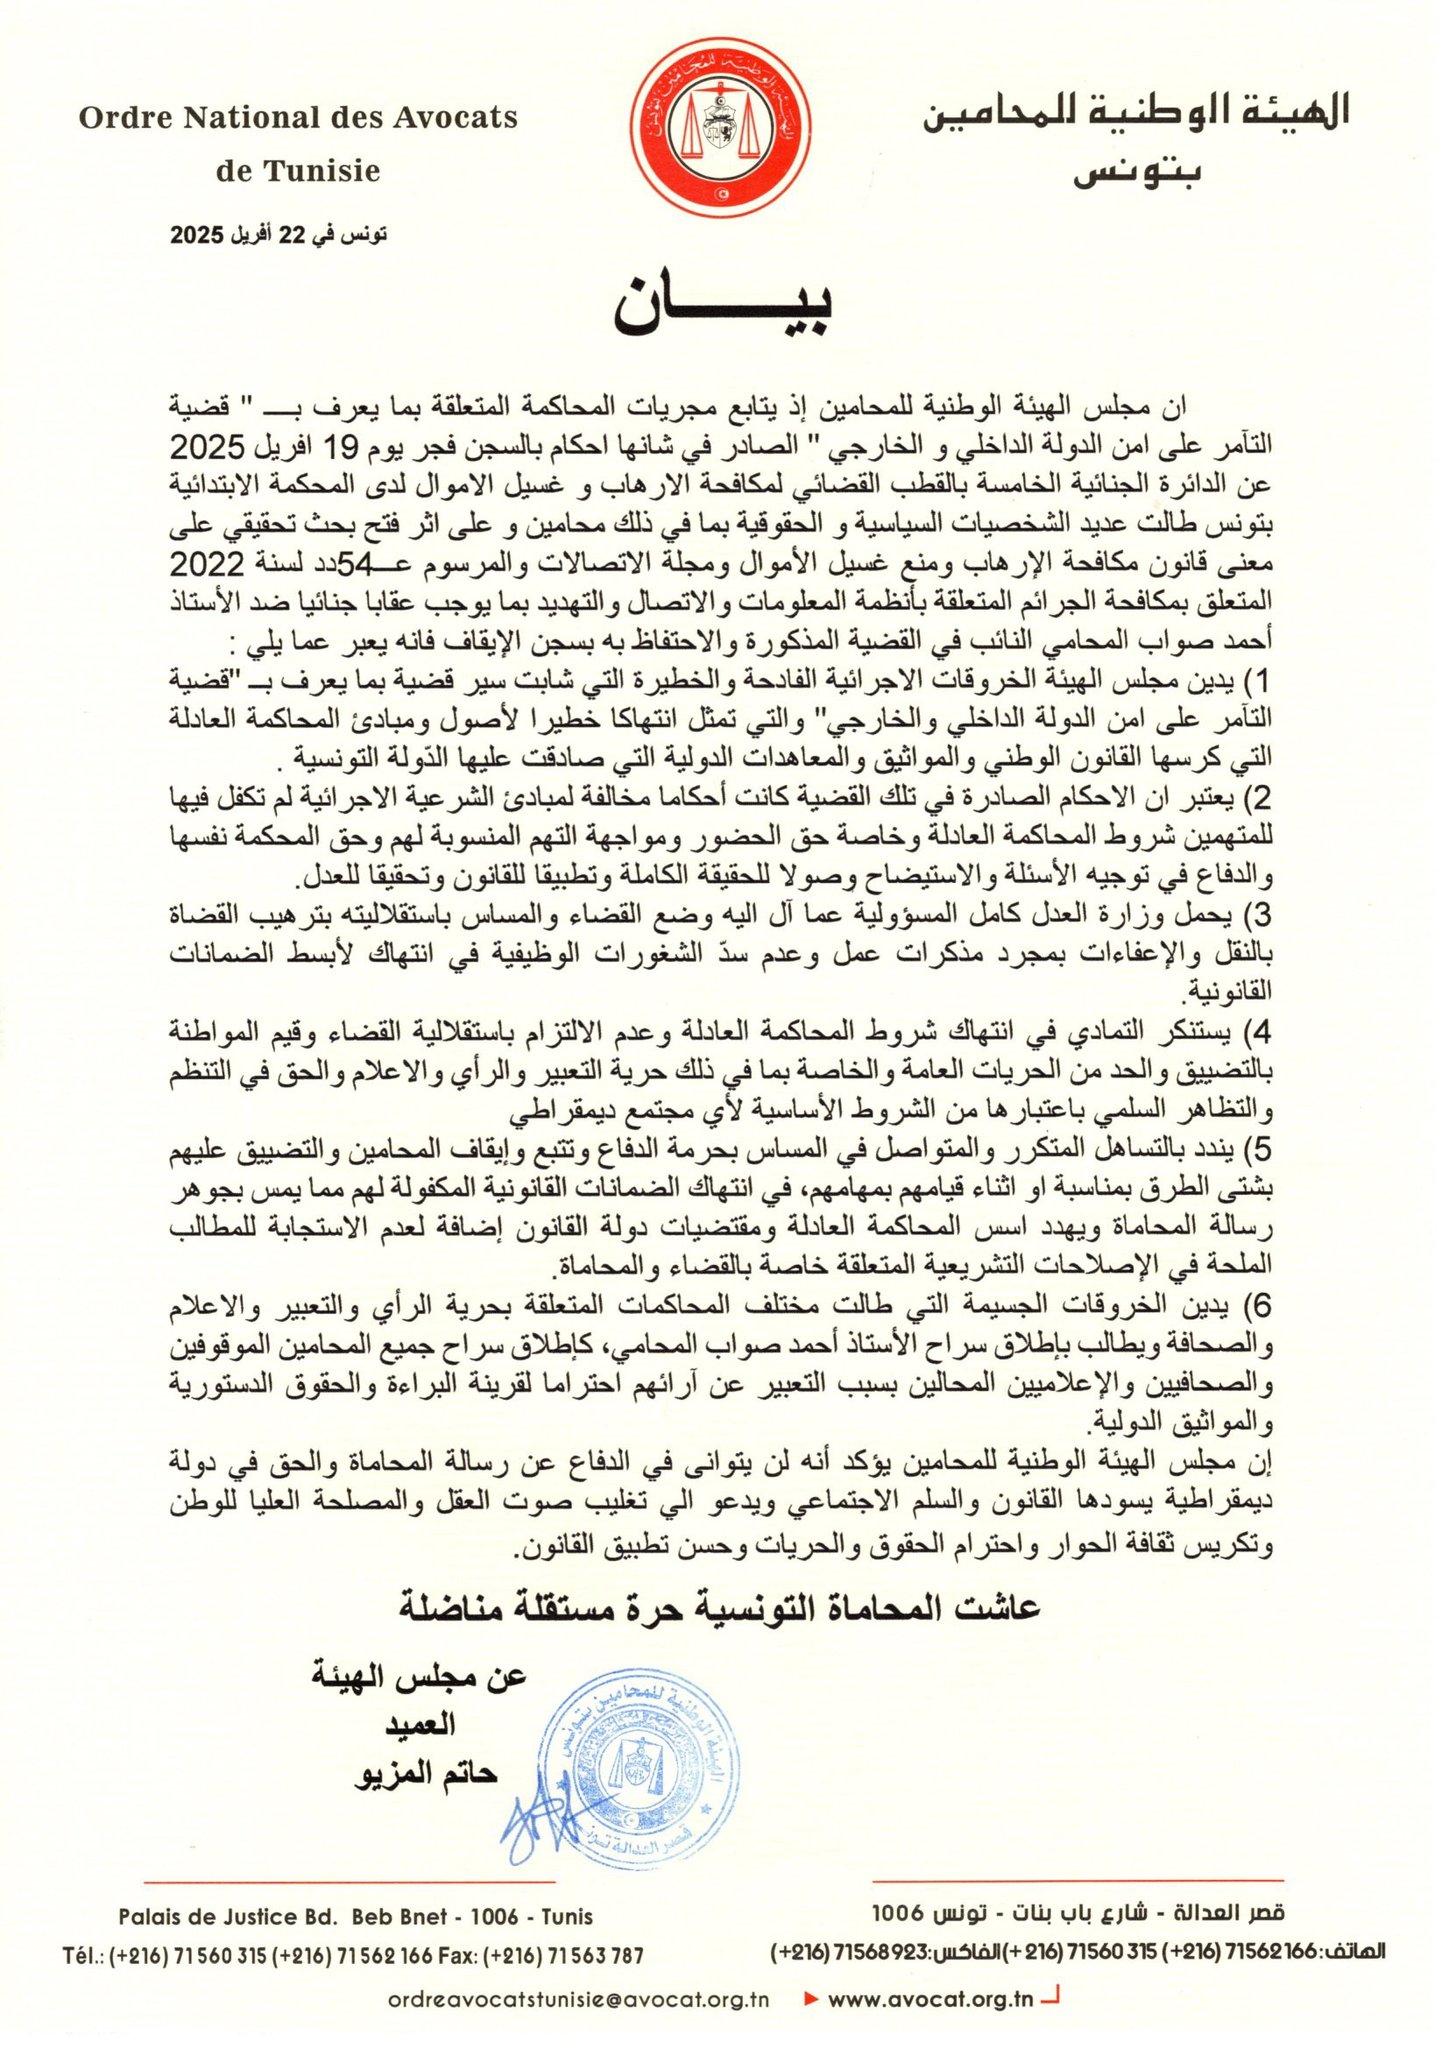 Ordre National des Avocats
de Tunisie
الهيئة الوطنية للمحامين بتونس
الهيئة الوطنية للمحامين
بتونس
تونس في 22 أفريل 2025
بيـــــان
ان مجلس الهيئة الوطنية للمحامين إذ يتابع مجريات المحاكمة المتعلقة بما يعرف بـــ " قضية
التآمر على امن الدولة الداخلي و الخارجي " الصادر في شانها احكام بالسجن فجر يوم 19 افريل 2025
عن الدائرة الجنائية الخامسة بالقطب القضائي لمكافحة الارهاب و غسيل الاموال لدى المحكمة الابتدائية
بتونس طالت عديد الشخصيات السياسية و الحقوقية بما في ذلك محامين و على اثر فتح بحث تحقيقي على
معنى قانون مكافحة الإرهاب ومنع غسيل الأموال ومجلة الاتصالات والمرسوم عـــ54دد لسنة 2022
المتعلق بمكافحة الجرائم المتعلقة بأنظمة المعلومات والاتصال والتهديد بما يوجب عقابا جنائيا ضد الأستاذ
أحمد صواب المحامي النائب في القضية المذكورة والاحتفاظ به بسجن الإيقاف فانه يعبر عما يلي :
1) يدين مجلس الهيئة الخروقات الاجرائية الفادحة والخطيرة التي شابت سير قضية بما يعرف بــ "قضية
التآمر على امن الدولة الداخلي والخارجي" والتي تمثل انتهاكا خطيرا لأصول ومبادئ المحاكمة العادلة
التي كرسها القانون الوطني والمواثيق والمعاهدات الدولية التي صادقت عليها الدّولة التونسية .
2) يعتبر ان الاحكام الصادرة في تلك القضية كانت أحكاما مخالفة لمبادئ الشرعية الاجرائية لم تكفل فيها
للمتهمين شروط المحاكمة العادلة وخاصة حق الحضور ومواجهة التهم المنسوبة لهم وحق المحكمة نفسها
والدفاع في توجيه الأسئلة والاستيضاح وصولا للحقيقة الكاملة وتطبيقا للقانون وتحقيقا للعدل.
3) يحمل وزارة العدل كامل المسؤولية عما آل اليه وضع القضاء والمساس باستقلاليته بترهيب القضاة
بالنقل والإعفاءات بمجرد مذكرات عمل وعدم سدّ الشغورات الوظيفية في انتهاك لأبسط الضمانات
القانونية.
4) يستنكر التمادي في انتهاك شروط المحاكمة العادلة وعدم الالتزام باستقلالية القضاء وقيم المواطنة
بالتضييق والحد من الحريات العامة والخاصة بما في ذلك حرية التعبير والرأي والاعلام والحق في التنظم
والتظاهر السلمي باعتبارها من الشروط الأساسية لأي مجتمع ديمقراطي
5) يندد بالتساهل المتكرر والمتواصل في المساس بحرمة الدفاع وتتبع وإيقاف المحامين والتضييق عليهم
بشتى الطرق بمناسبة او اثناء قيامهم بمهامهم، في انتهاك الضمانات القانونية المكفولة لهم مما يمس بجوهر
رسالة المحاماة ويهدد اسس المحاكمة العادلة ومقتضيات دولة القانون إضافة لعدم الاستجابة للمطالب
الملحة في الإصلاحات التشريعية المتعلقة خاصة بالقضاء والمحاماة.
6) يدين الخروقات الجسيمة التي طالت مختلف المحاكمات المتعلقة بحرية الرأي والتعبير والاعلام
والصحافة ويطالب بإطلاق سراح الأستاذ أحمد صواب المحامي، كإطلاق سراح جميع المحامين الموقوفين
والصحافيين والإعلاميين المحالين بسبب التعبير عن آرائهم احتراما لقرينة البراءة والحقوق الدستورية
والمواثيق الدولية.
إن مجلس الهيئة الوطنية للمحامين يؤكد أنه لن يتوانى في الدفاع عن رسالة المحاماة والحق في دولة
ديمقراطية يسودها القانون والسلم الاجتماعي ويدعو الي تغليب صوت العقل والمصلحة العليا للوطن
وتكريس ثقافة الحوار واحترام الحقوق والحريات وحسن تطبيق القانون.
عاشت المحاماة التونسية حرة مستقلة مناضلة
عن مجلس الهيئة
العميد
حاتم المزيو
الهيئة الوطنية للمحامين بتونس
قصر العدالة تونس
قصر العدالة - شارع باب بنات - تونس 1006
الهاتف:71562166 (216+) 71560315 (216+)الفاكس:71568923(216+)
Palais de Justice Bd. Beb Bnet - 1006 - Tunis
Tél.: (+216) 71 560 315 (+216) 71 562 166 Fax: (+216) 71 563 787
ordreavocatstunisie@avocat.org.tn
www.avocat.org.tn